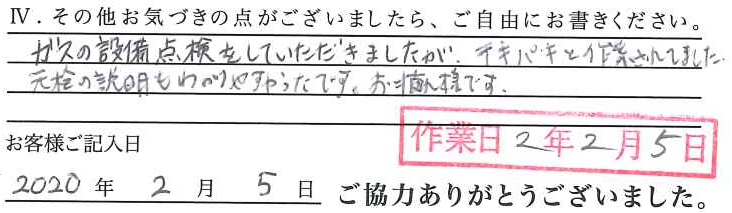 Ⅳ．その他お気づきの点がございましたら、ご自由にお書きください。
ガスの設備点検をしていただきましたが、テキパキと作業されてました。
元栓の説明もわかりやすかったです。お疲れ様です。
お客様ご記入日
作業日 2年2月5日
2020 年 2 月 5 日 ご協力ありがとうございました。